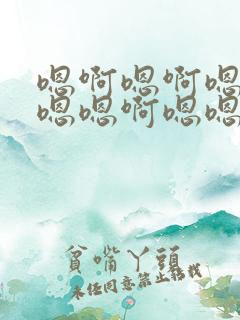 嗯啊嗯啊嗯
嗯嗯啊嗯嗯
貧嘴丫頭
未经同意禁止转载